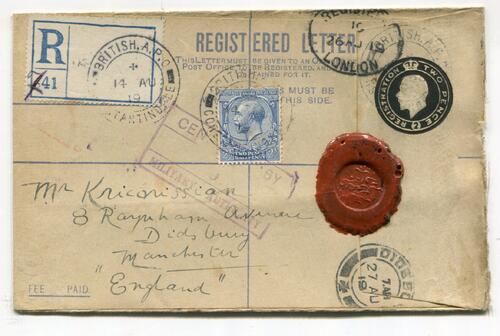 R
41
BRITISH. A.P.O.
14 AU
19
CONSTANTINOPLE
REGISTERED LETTER.
THIS LETTER MUST BE GIVEN TO AN OFFICER OF THE
POST OFFICE TO BE REGISTERED, AND
OBTAINED FOR IT.
MUST BE
THIS SIDE.
REGISTERED
LONDON
BRITISH. A.P.O.
REGISTRATION TWO PENCE
CEN BY
MILITARY AUTHORITY
Mr Kricorissian
8 Raynham Avenue
Didsbury
Manchester
"England"
FEE PAID.
DIDSB
7 AM
27 AU
19